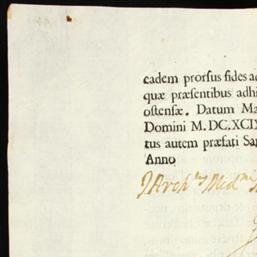 eadem prorsus fides ad
quæ præsentibus adhi
ostensæ. Datum Ma
Domini M.DC.XCIX
tus autem præfati San
Anno